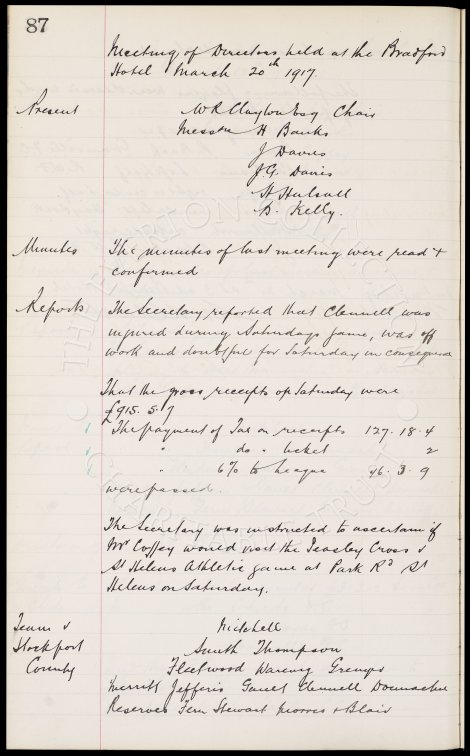 87
Meeting of Directors held at the Bradford
Hotel March 20th 1917.
Present W R Clayton Esq Chair
Messrs H Banks
J Davies
J.G. Davies
H Halsall
D. Kelly.
Minutes The minutes of last meeting were read +
confirmed
Reports The Secretary reported that Clennell was
injured during Saturdays game, was off
work and doubtful for Saturday in consequence
That the gross receipts of Saturday were
£915. 5. 7
The payment of Tax on receipts 127. 18. 4
" do " ticket 2
" 6% to League 46. 3. 9
were passed.
The Secretary was instructed to ascertain if
Mr Coffey would visit the Peasley Cross v
St Helens Athletic game at Park Rd St
Helens on Saturday.
Team v Mitchell
Stockport Smith Thompson
County Fleetwood Wareing Grenyer
Merritt Jefferis Gault Clennell Donnachie
Reserves Fern Stewart Morris + Blair
THE EVERTON COLLECTION
CHARITABLE TRUST